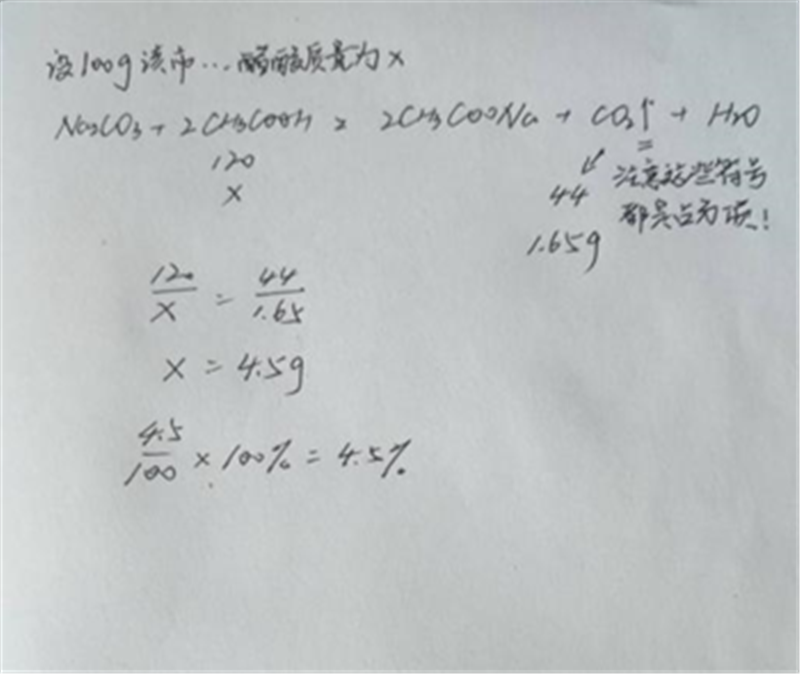 设100g该市...醋酸质量为x
Na2CO3+2CH3COOH = 2CH3COONa + CO2↑ + H2O
120
x
44
1.65g
注意这些符号
都是占分项!
120/x = 44/1.65
x = 4.5g
4.5/100 × 100% = 4.5%